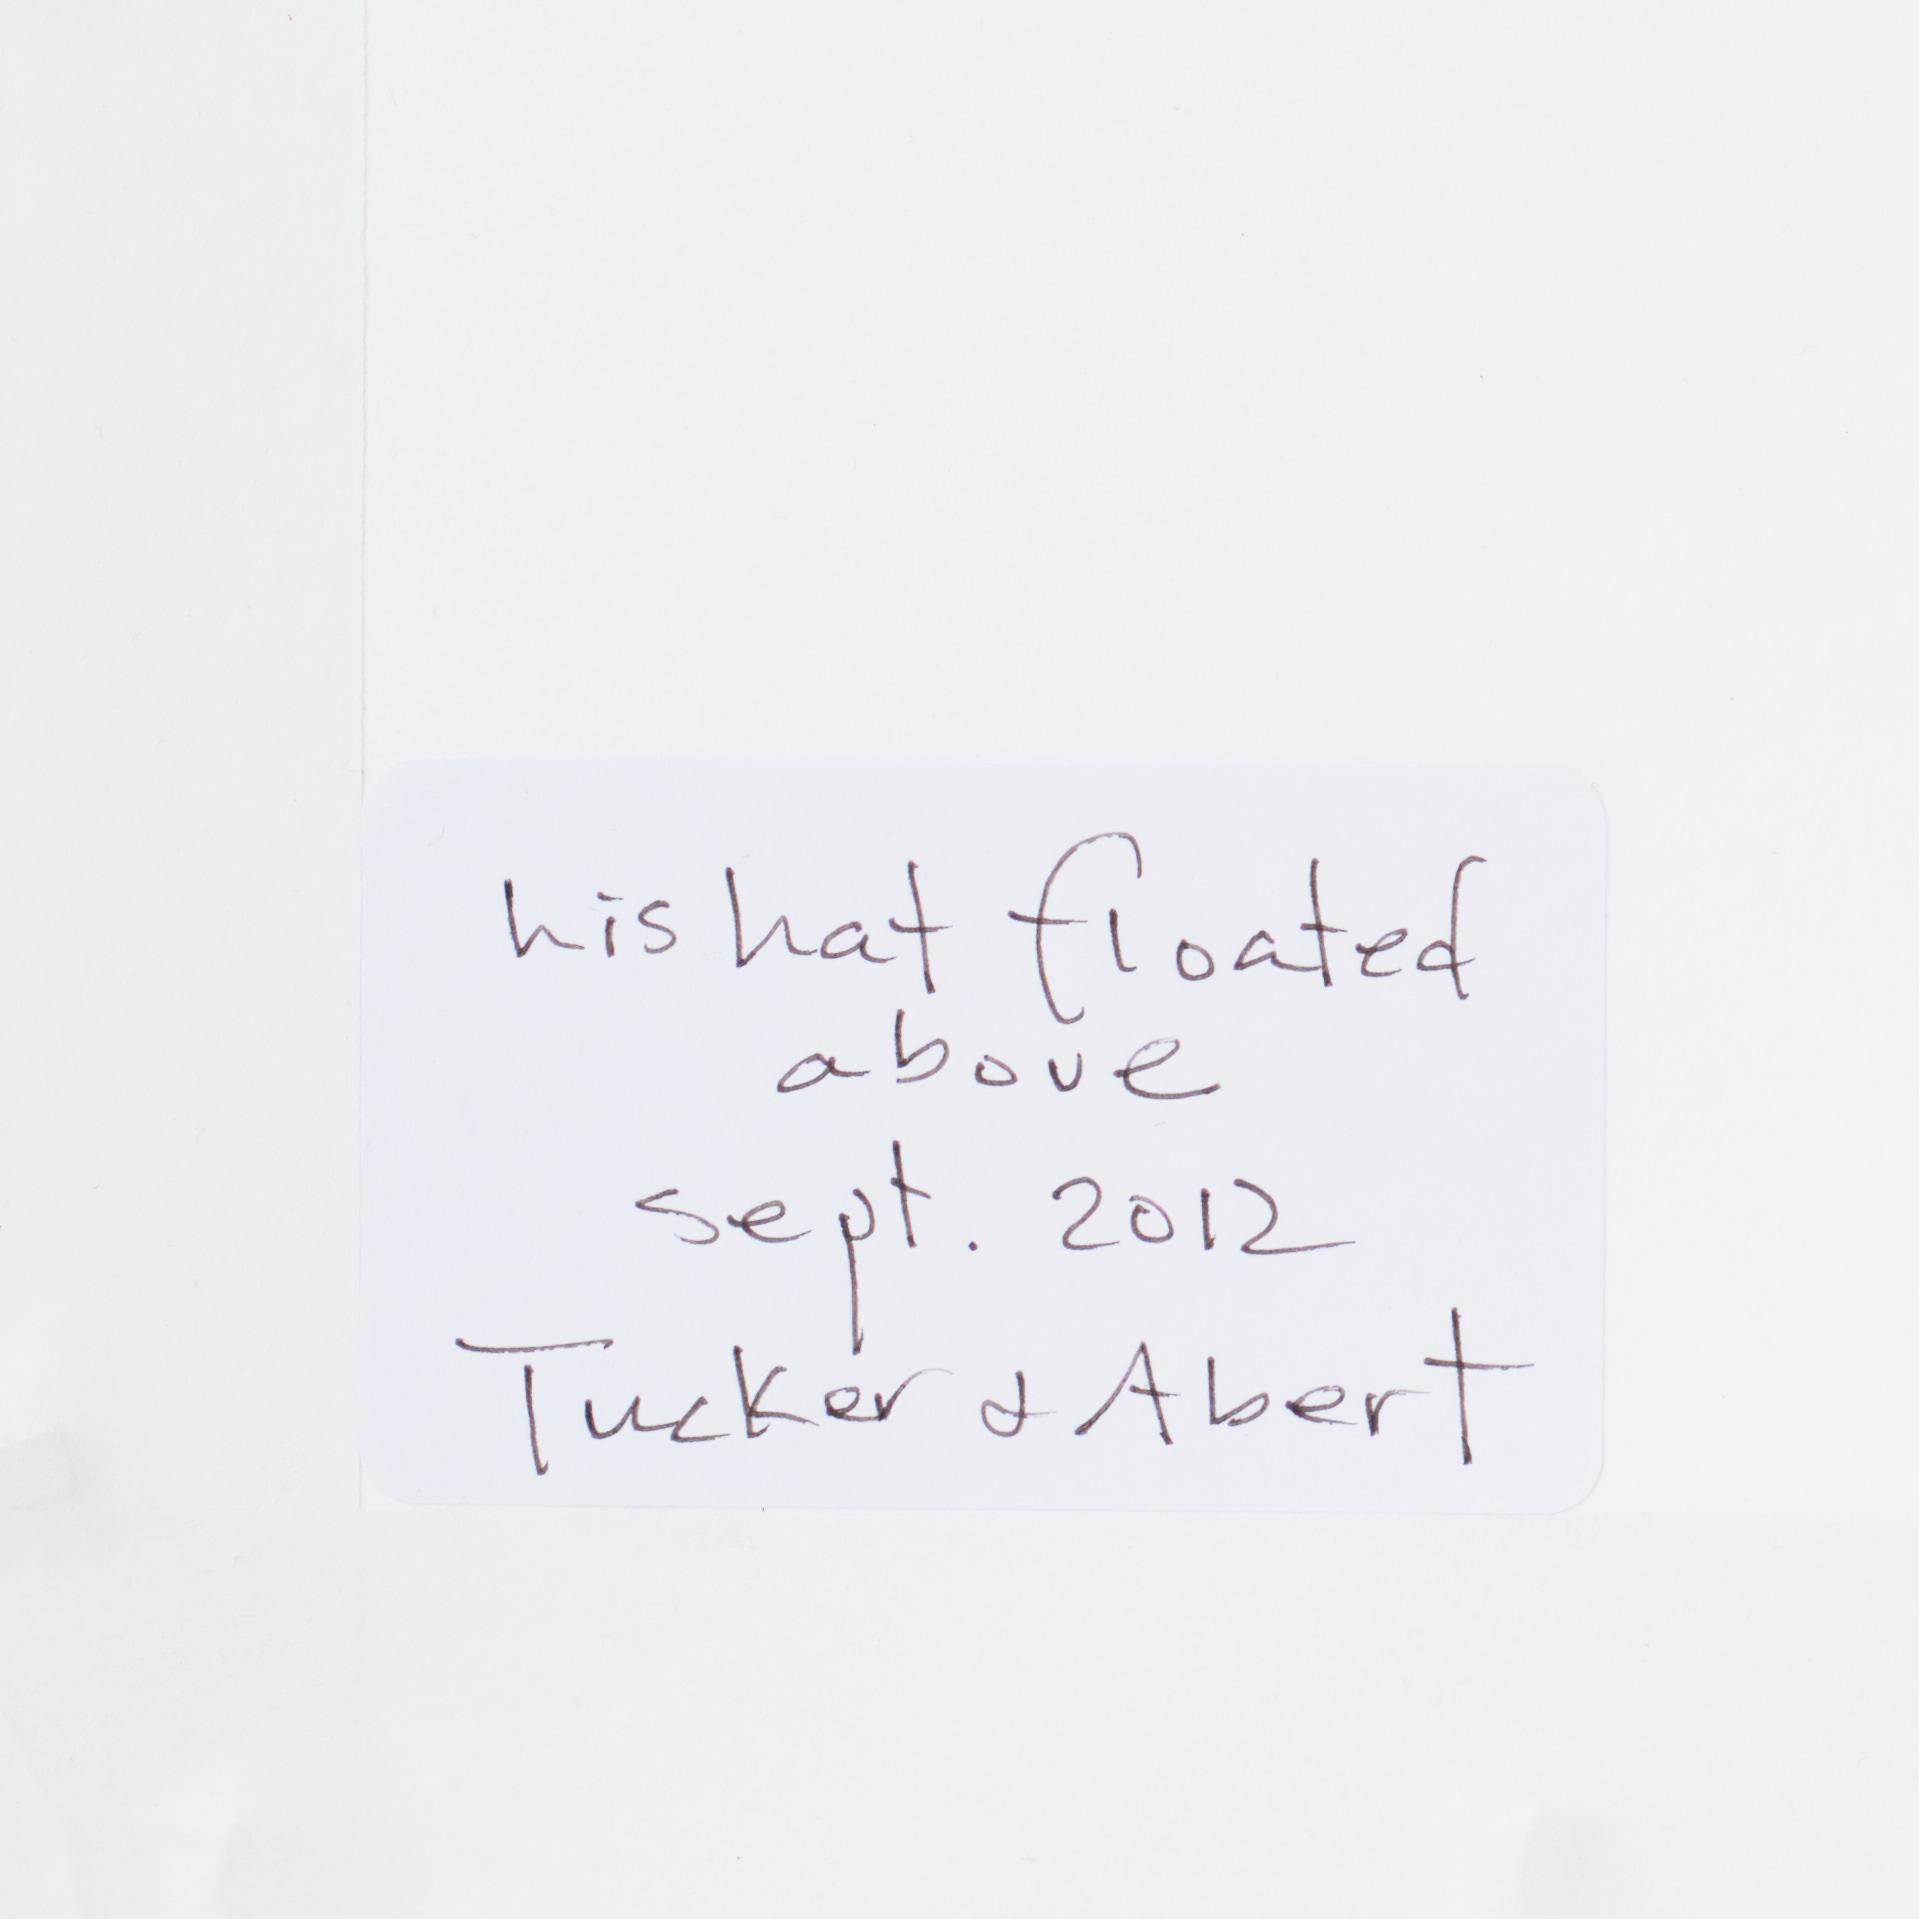 his hat floated
above
sept. 2012
Tucker & Abert